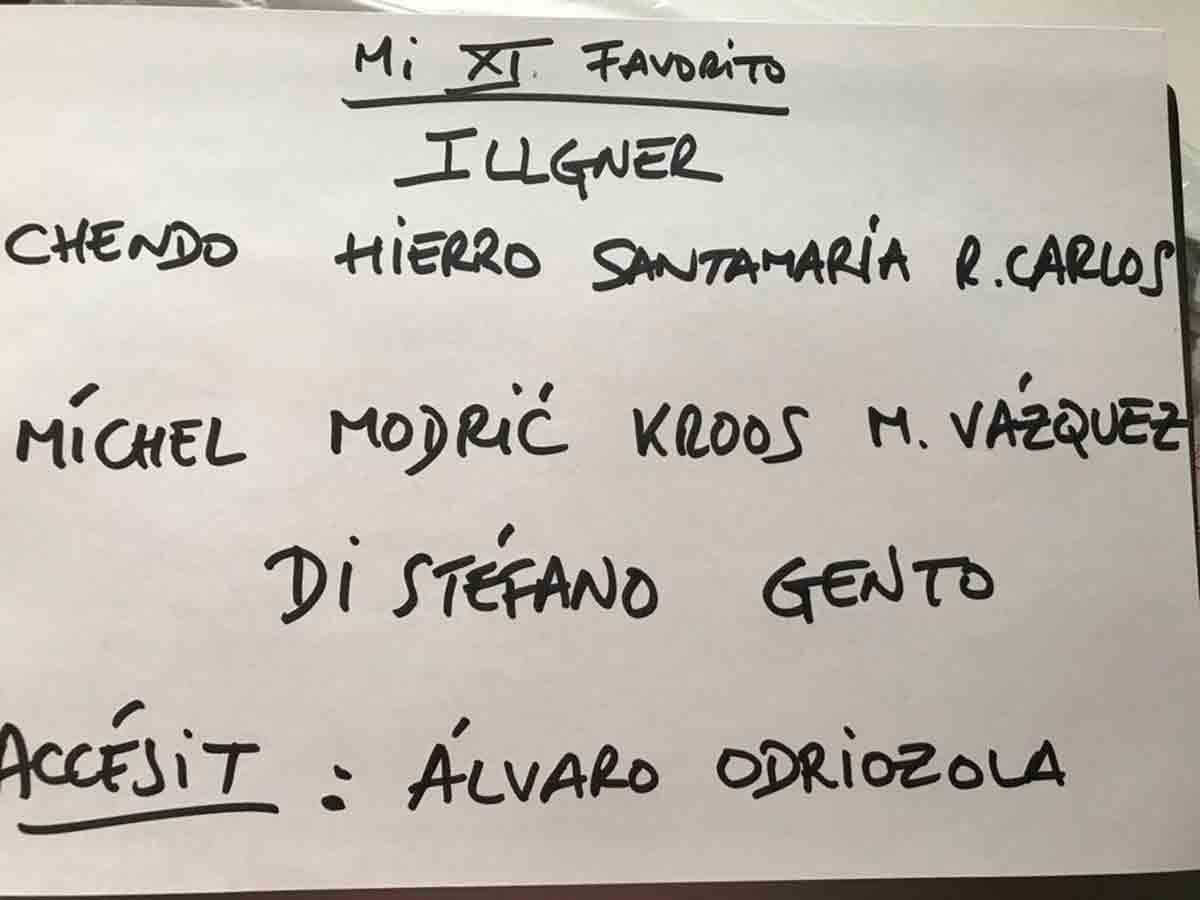 Mi XI. FAVORITO
ILLGNER
CHENDO HiERRO SANTAMARÍA R. CARLOS
MÍCHEL MODRIĆ KROOS M. VÁZQUEZ
Di STÉFANO GENTO
ACCÉSiT : ÁLVARO ODRIOZOLA